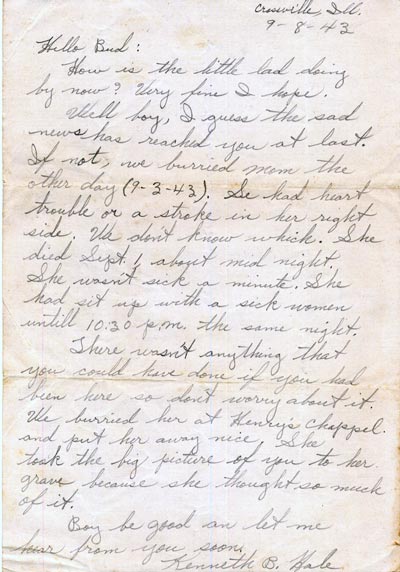 Crossville, Ill.
9-8-43
Hello Bud:
How is the little lad doing
by now? Very fine I hope.
Well boy, I guess the sad
news has reached you at last.
If not, we burried mom the
other day (9-3-43). Se had heart
trouble or a stroke in her right
side. We don't know which. She
died Sept. 1, about mid night.
She wasn't sick a minute. She
had sit up with a sick women
untill 10:30 p.m. the same night.
There wasn't anything that
you could have done if you had
been here so don't worry about it.
We burried her at Henry's Chappel
and put her away nice. She
took the big picture of you to her
grave because she thought so much
of it.
Boy be good an let me
hear from you soon.
Kenneth B. Hale